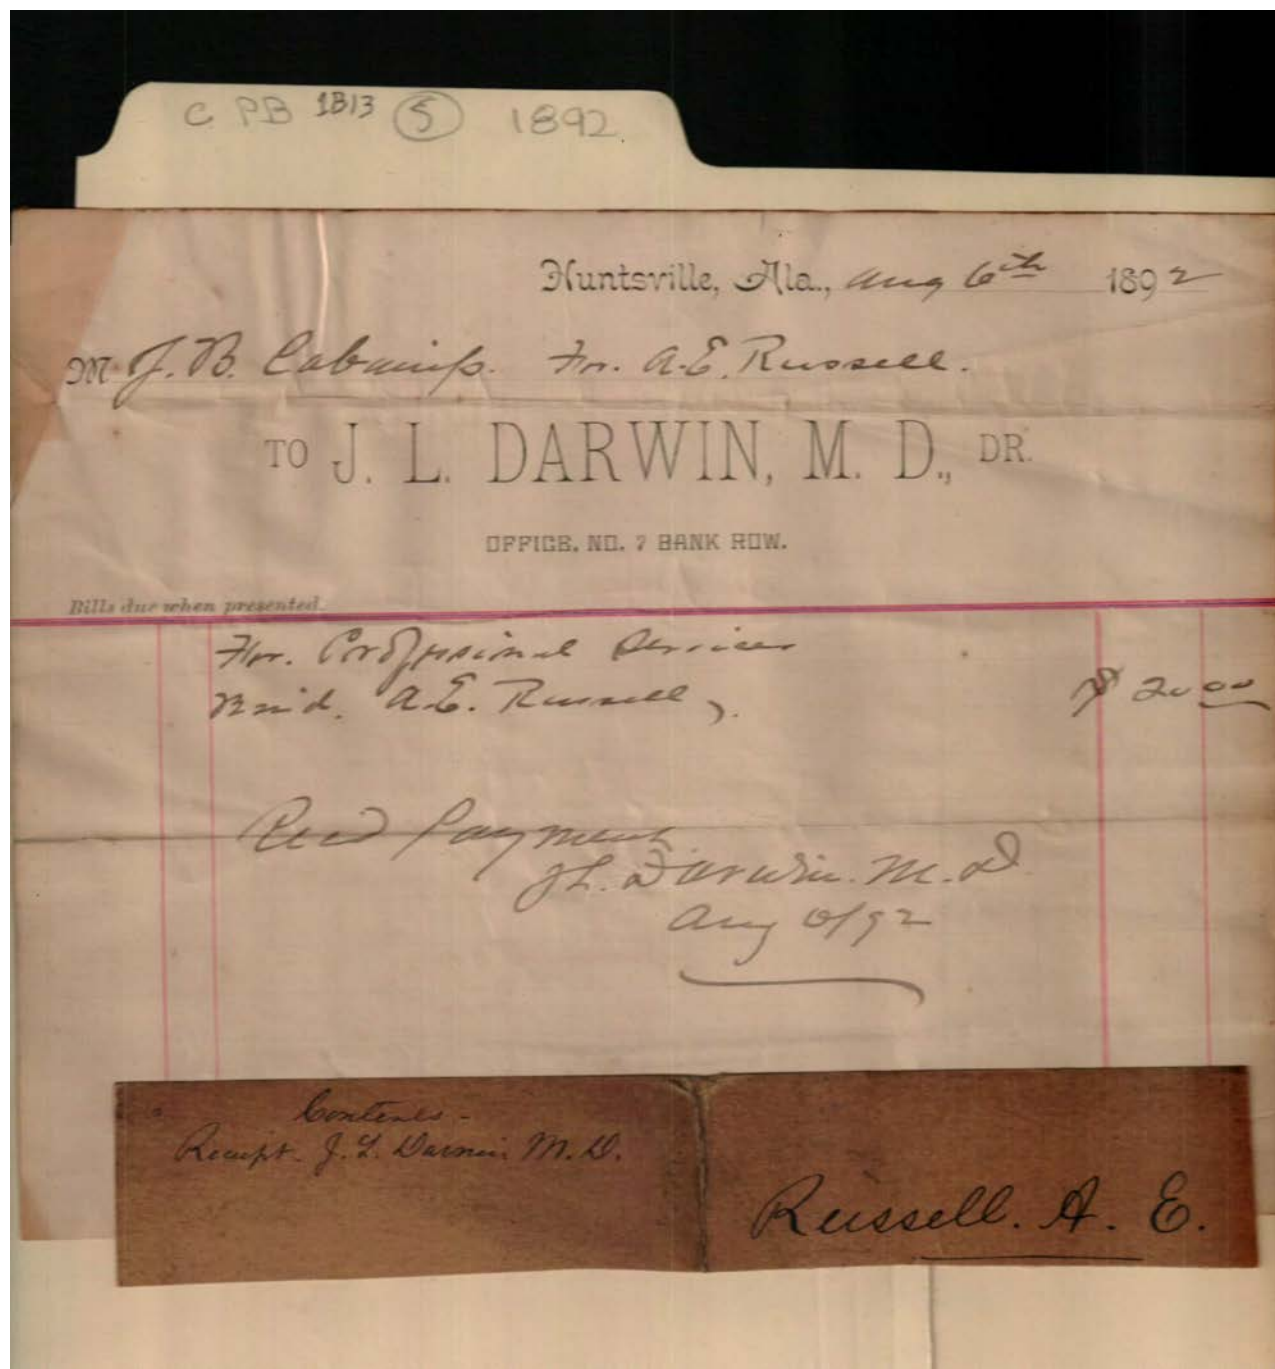 C PB 1B13 5 1892
Huntsville, Ala., Aug 6th 1892
M J. B. Cabaniss. For. A. E. Russell.
TO J. L. DARWIN, M. D., DR.
OFFICE, NO. 7 BANK ROW.
Bills due when presented.
For. Professional Services
A. E. Russell, $ 20 00
Recd Payment
J L. Darwin. M. D.
Aug /92
Contents -
Receipt - J. L. Darwin M. D.
Russell. A. E.